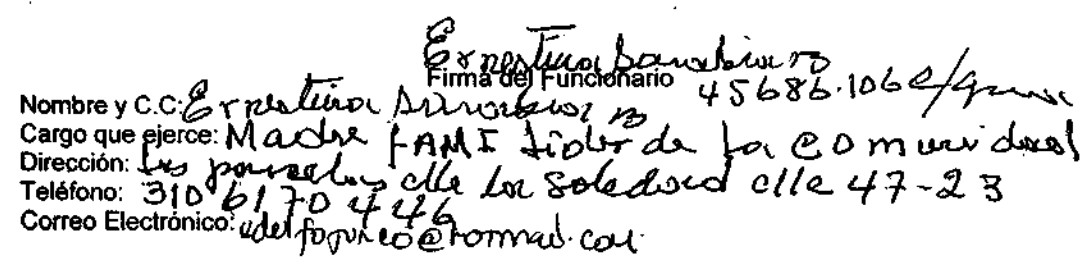 Ernestina Sanabria B
Firma del Funcionario 45686.106 C/gena
Nombre y C.C: Ernestina Sanabria B
Cargo que ejerce: Madre FAMI Lider de la comunidad
Dirección: las parcelas clle la Soledad clle 47-23
Teléfono: 310 6170446
Correo Electrónico: